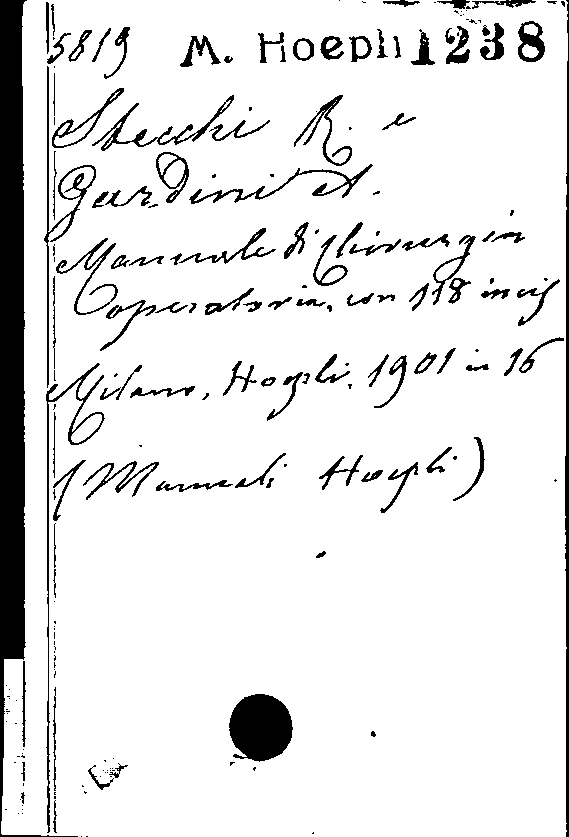 5819 M. Hoepli 1238
Stecchi R. e
Gardini A.
Manuale di Chirurgia
operatoria, con 118 incis
Milano, Hoepli, 1901 in 16
(Manuali Hoepli)